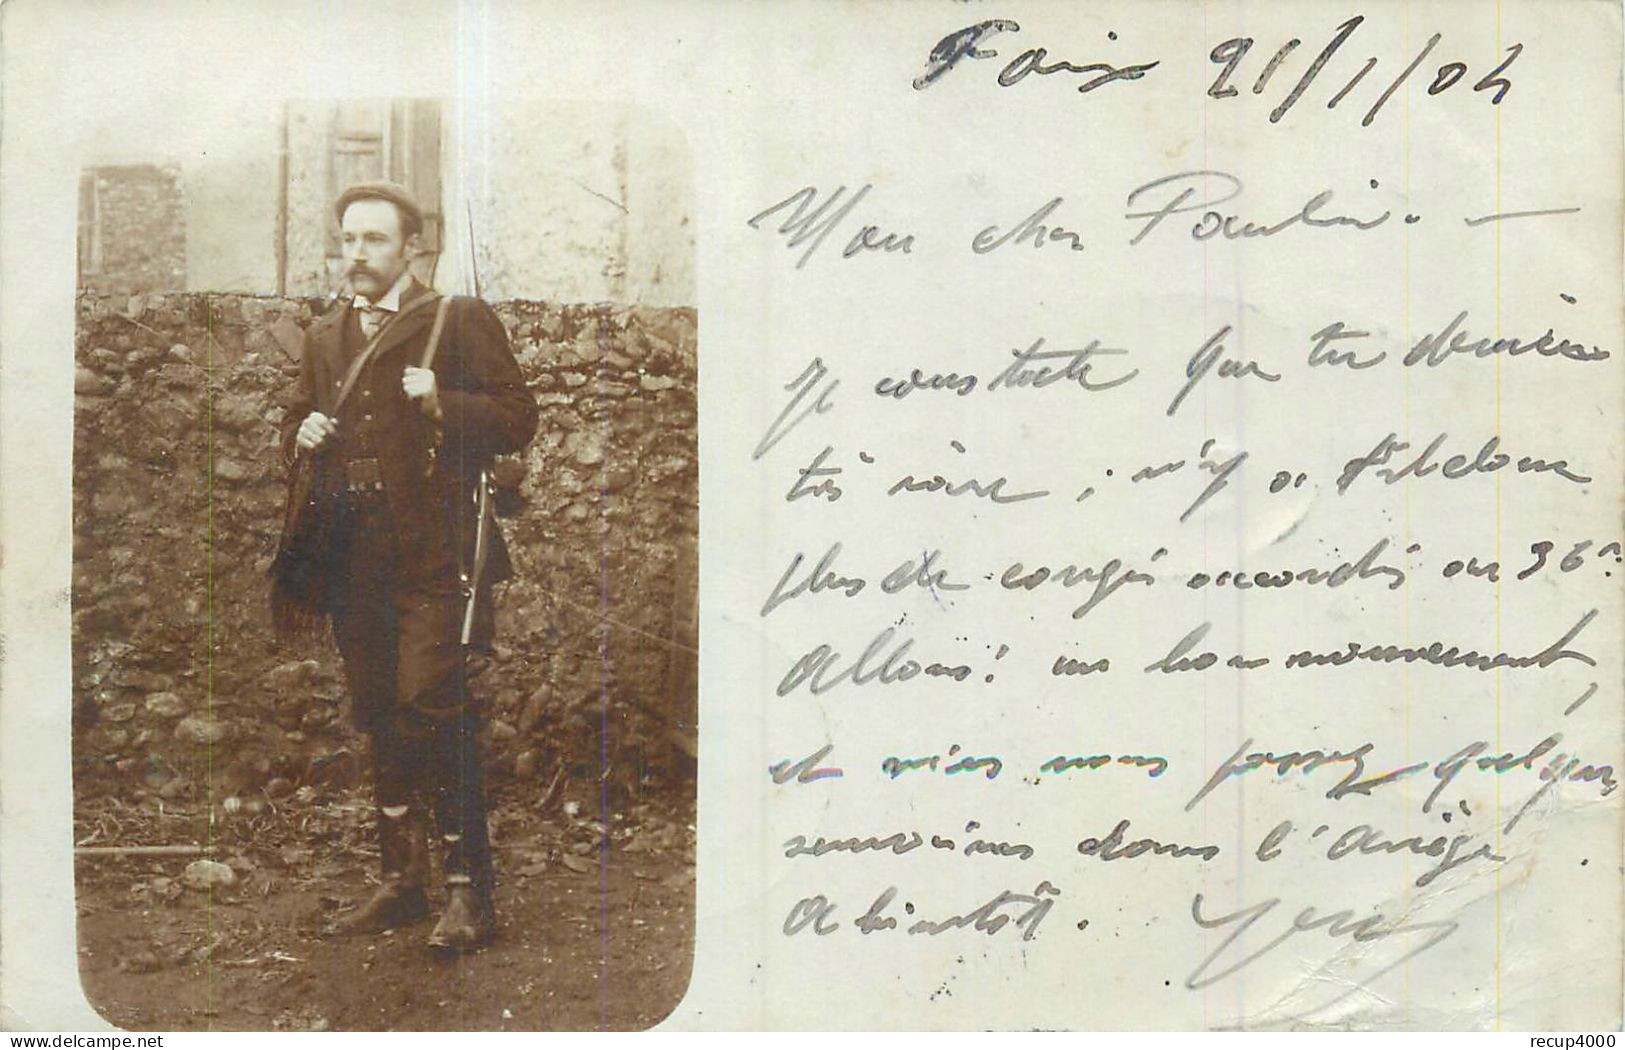 Foix 21/1/04
Mon cher Paulin. —
Je constate que tu deviens
très rare ; n'y a
plus de congés accordés au 36e.
Allons ! un bon mouvement,
et viens nous passer quelques
semaines dans l'Ariège.
A bientôt.
recup4000